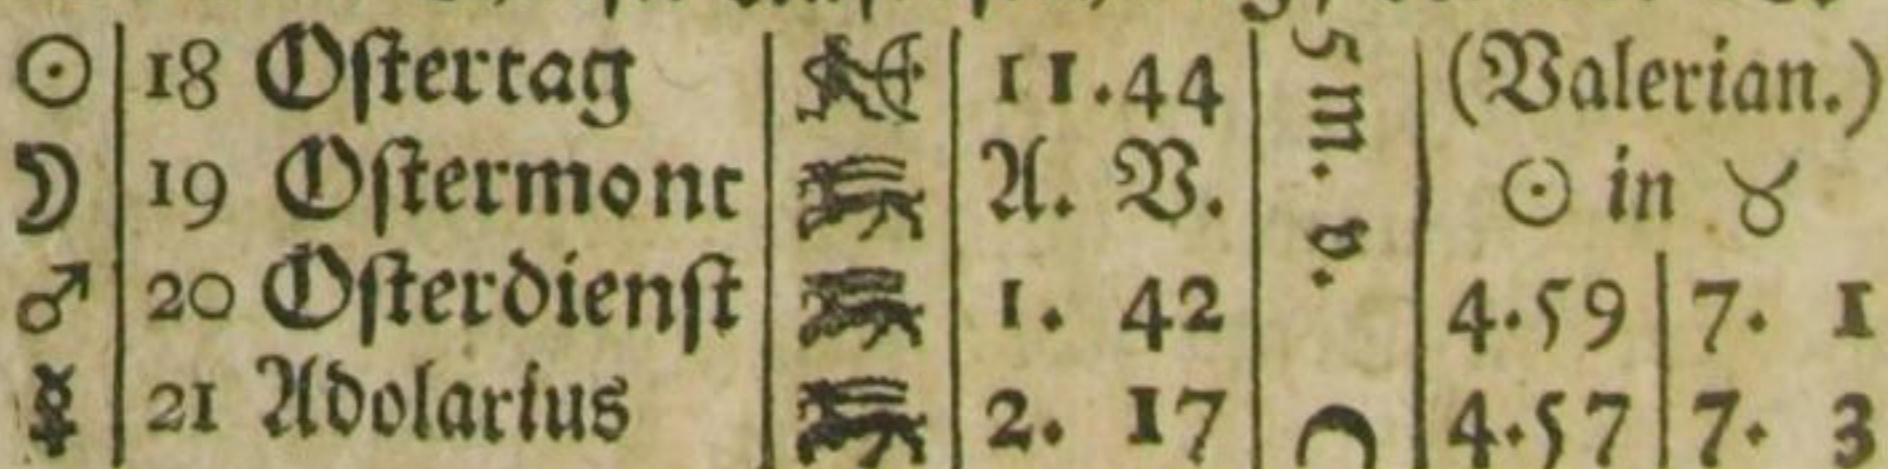 ☉ 18 Oſtertag ♐ 11.44 (Valerian.)
☽ 19 Oſtermont A. V. ☉ in ♉
♂ 20 Oſterdienſt 1. 42 4.59 7. 1
☿ 21 Adolarius 2. 17 4.57 7. 3
5 m. v.